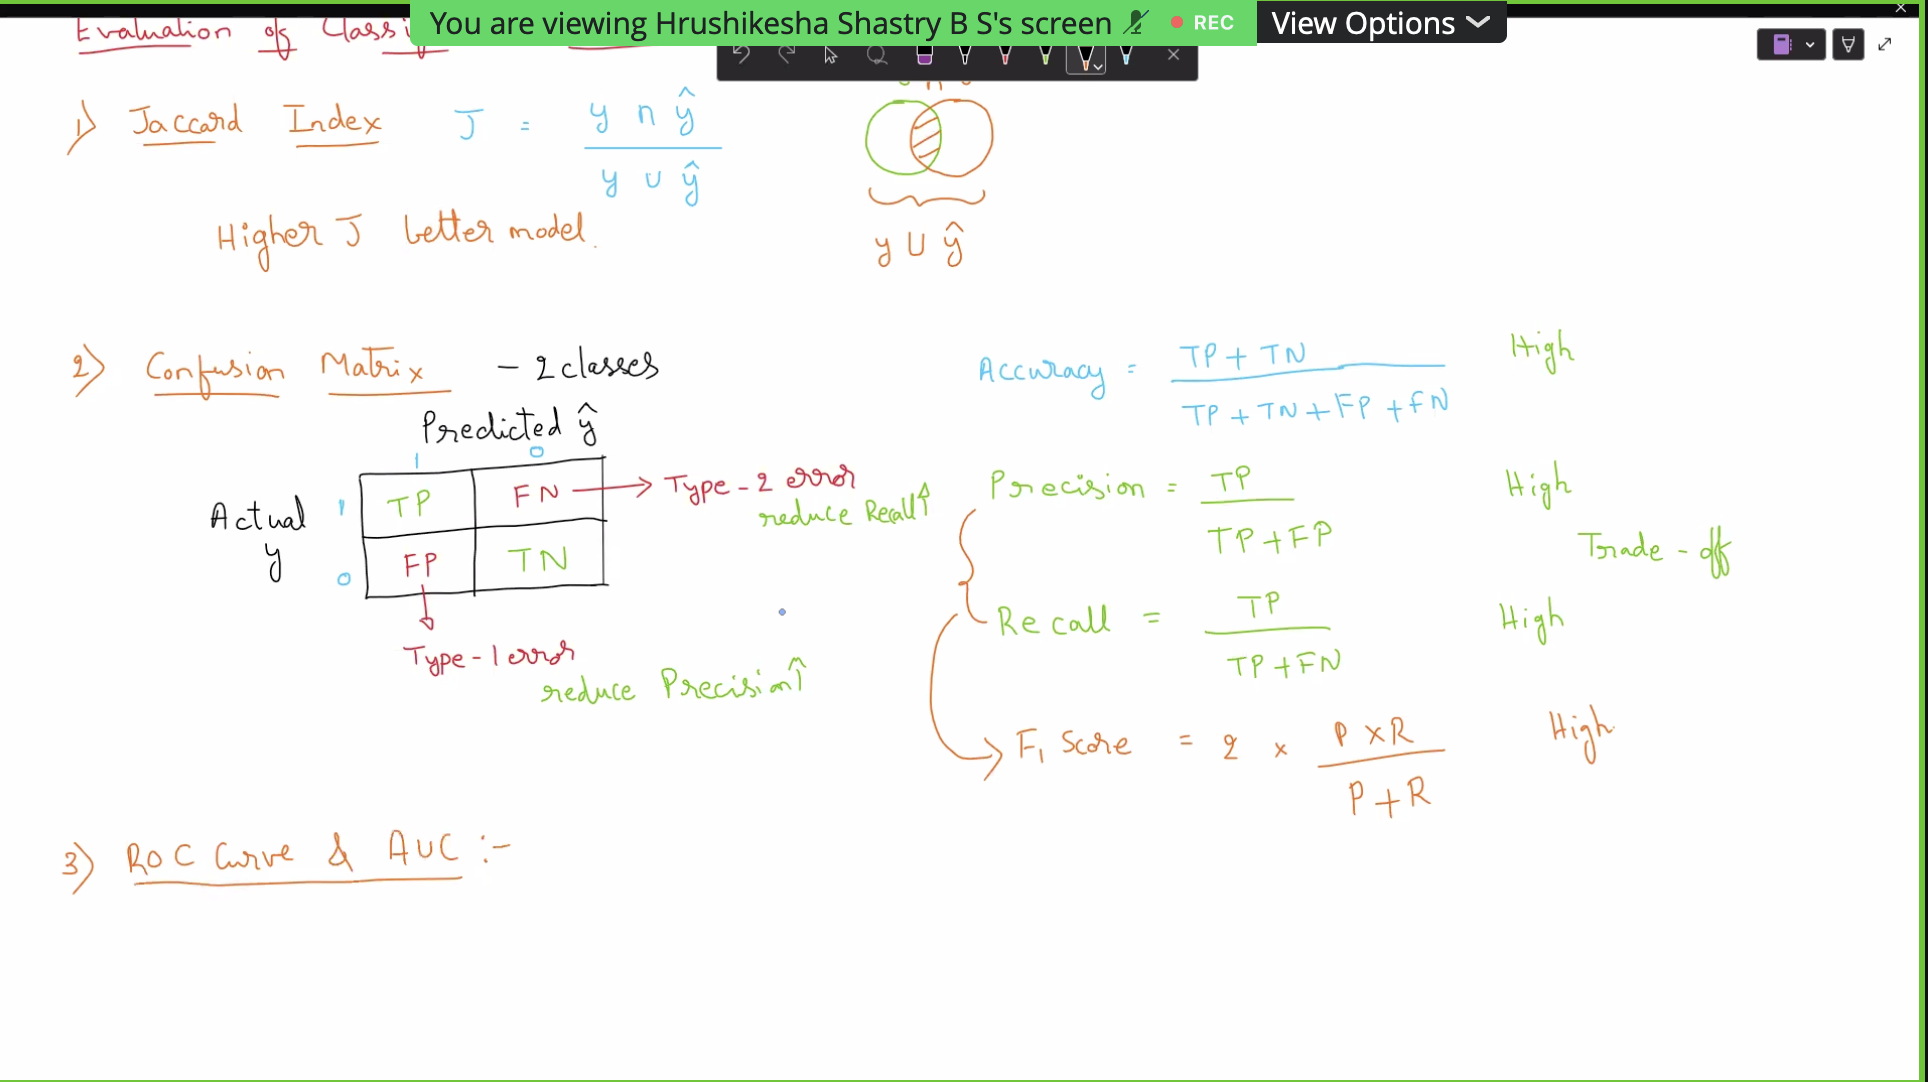 You are viewing Hrushikesha Shastry B S's screen REC View Options
Evaluation of
1) Jaccard Index J = y ∩ ŷ / y ∪ ŷ
y ∪ ŷ
Higher J better model.
2) Confusion Matrix - 2 classes
Predicted ŷ
1 0
Actual y
1 TP FN → Type - 2 error
reduce Recall↑
0 FP TN
Type - 1 error
reduce Precision↑
Accuracy = TP + TN / TP + TN + FP + FN High
Precision = TP / TP + FP High
Trade - off
Recall = TP / TP + FN High
F1 Score = 2 × P × R / P + R High
3) ROC Curve & AUC :-